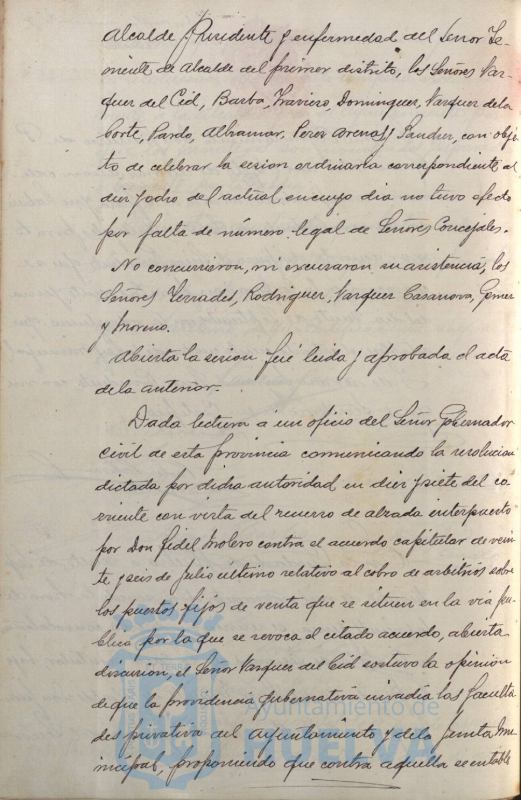 Alcalde Presidente y enfermedad del Señor Te-
niente de Alcalde del primer distrito, los Señores Vaz-
quez del Cid, Barba, Travieso, Dominguez, Vazquez de la
Corte, Pardo, Albramar, Perez Arenas y Sanchez, con obje-
to de celebrar la sesion ordinaria correspondiente al
diez y ocho del actual en cuyo dia no tuvo efecto
por falta de número legal de Señores Concejales.
No concurrieron, ni excusaron su asistencia, los
Señores Terrades, Rodriguez, Vazquez Casanova, Gomez
y Moreno.
Abierta la sesion fué leida y aprobada el acta
de la anterior.
Dada lectura á un oficio del Señor Gobernador
civil de esta provincia comunicando la resolucion
dictada por dicha autoridad en diez y siete del co-
rriente con vista del recurso de alzada interpuesto
por Don Fidel Molero contra el acuerdo capitular de vein-
te y seis de Julio último relativo al cobro de arbitrios sobre
los puestos fijos de venta que se sitúen en la via pú-
blica por la que se revoca el citado acuerdo, abierta
discusion, el Señor Vazquez del Cid sostuvo la opinion
de que la providencia gubernativa invadía las faculta-
des privativas del ayuntamiento y de la Junta Mu-
nicipal, proponiendo que contra aquella se entable
Ayuntamiento de
HUELVA